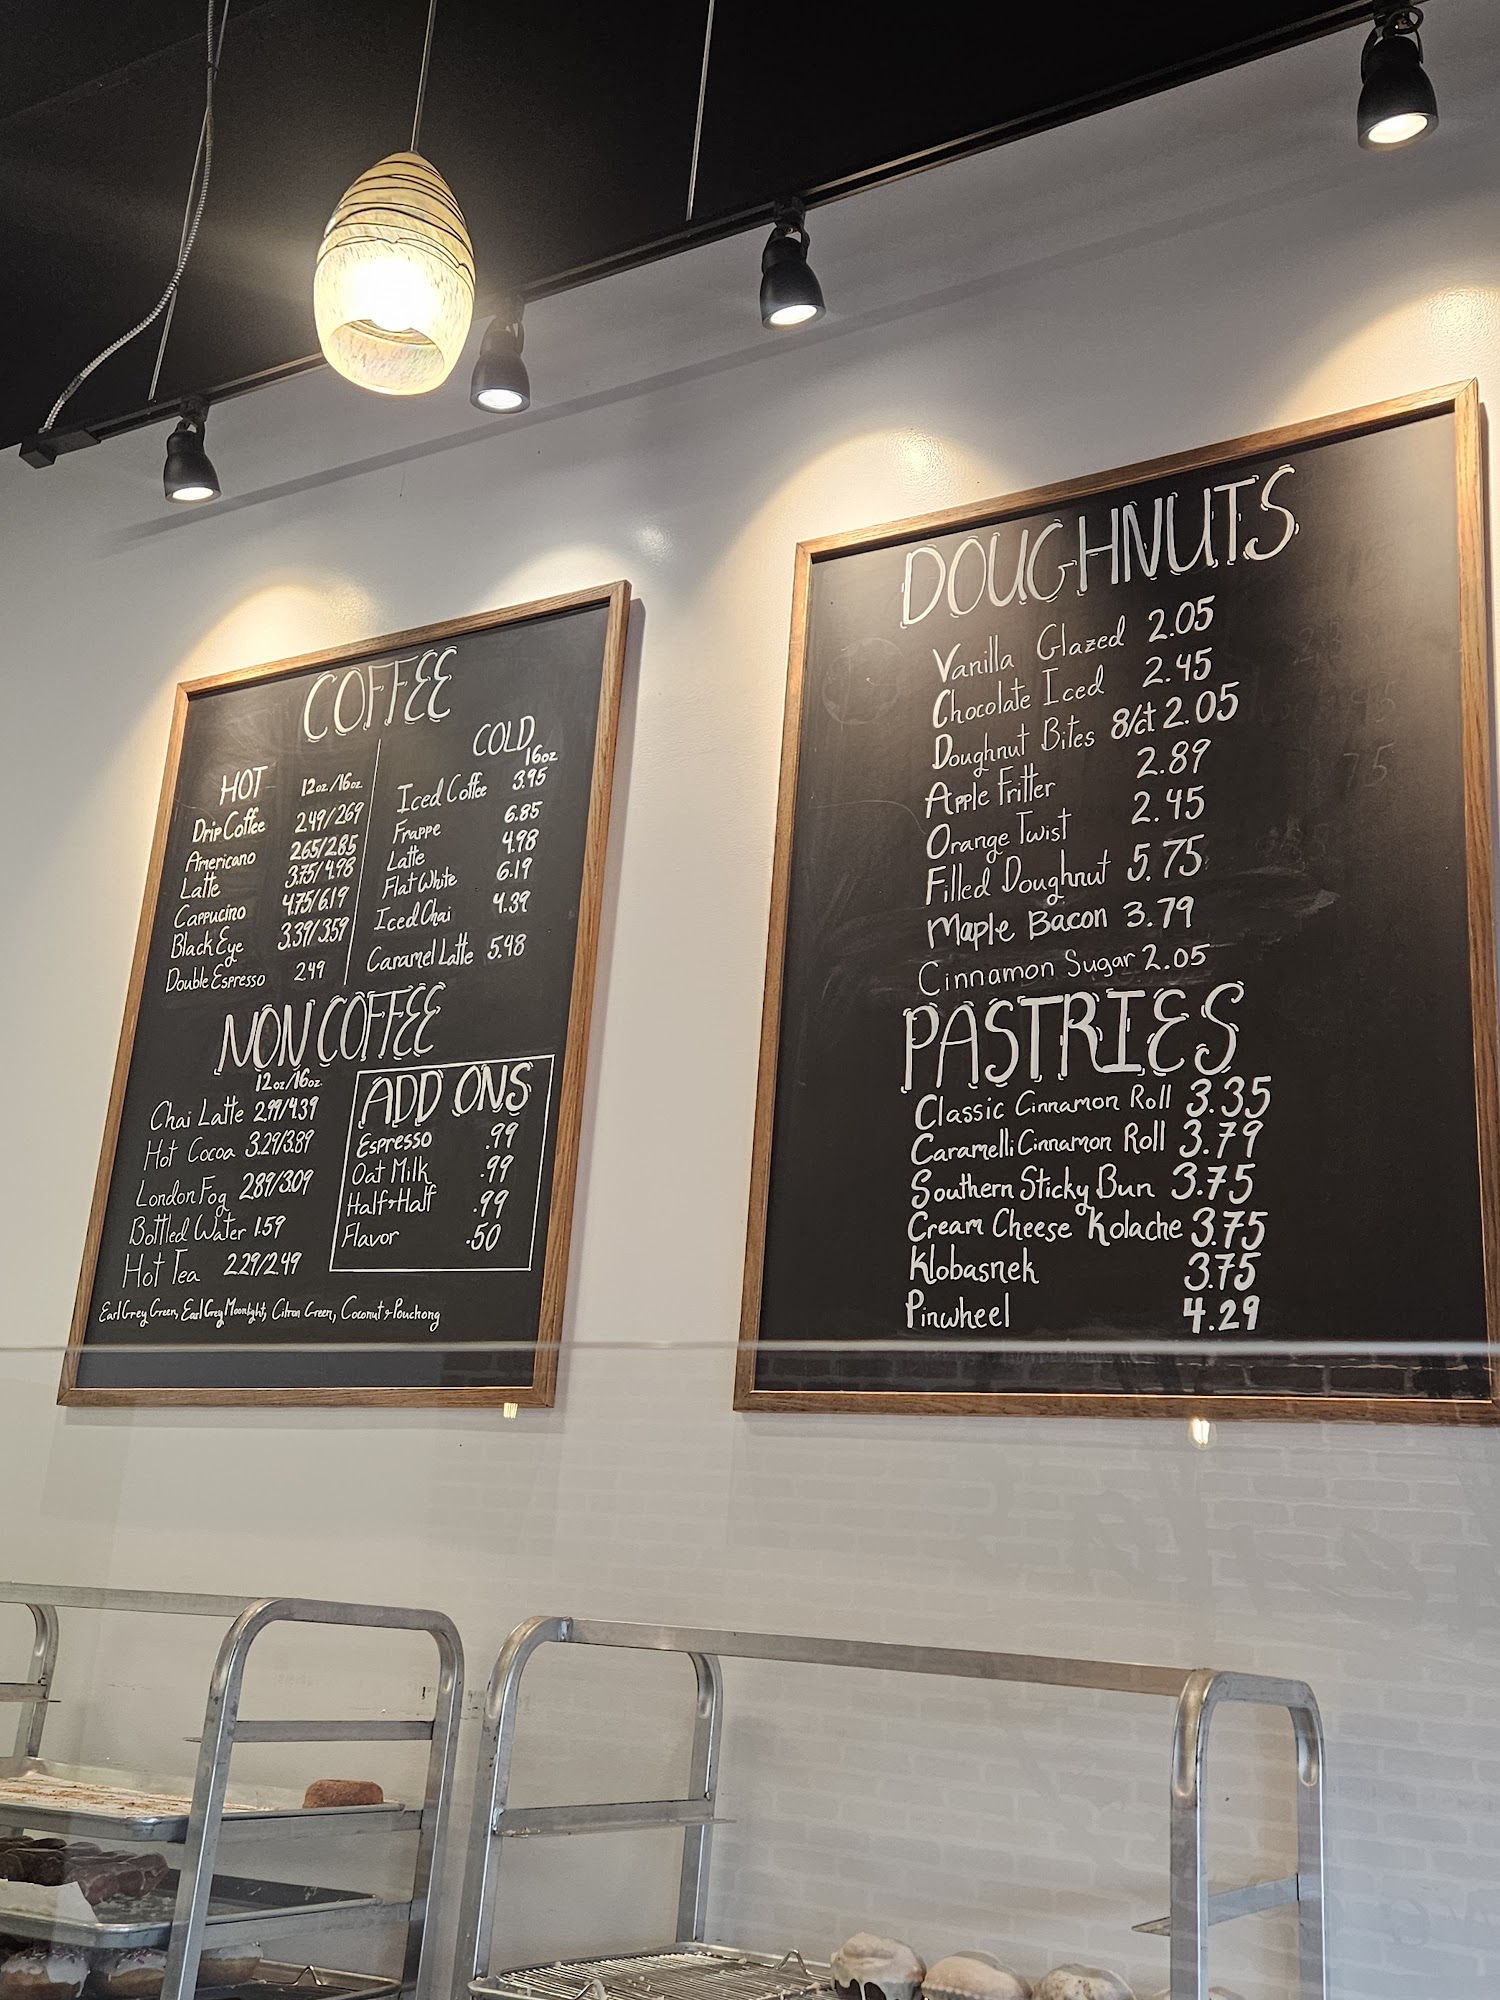 COFFEE
HOT 12oz/16oz
Drip Coffee 2.49/2.69
Americano 2.65/2.85
Latte 3.75/4.98
Cappucino 4.75/6.19
Black Eye 3.39/3.59
Double Espresso 2.49
COLD
16oz
Iced Coffee 3.95
Frappe 6.85
Latte 4.98
Flat White 6.19
Iced Chai 4.39
Caramel Latte 5.48
NON COFFEE
12oz/16oz
Chai Latte 2.99/4.39
Hot Cocoa 3.29/3.89
London Fog 2.89/3.09
Bottled Water 1.59
Hot Tea 2.29/2.49
Earl Grey Green, Earl Grey Moonlight, Citron Green, Coconut & Pouchong
ADD ONS
Espresso .99
Oat Milk .99
Half & Half .99
Flavor .50
DOUGHNUTS
Vanilla Glazed 2.05
Chocolate Iced 2.45
Doughnut Bites 8/ct 2.05
Apple Fritter 2.89
Orange Twist 2.45
Filled Doughnut 5.75
Maple Bacon 3.79
Cinnamon Sugar 2.05
PASTRIES
Classic Cinnamon Roll 3.35
Caramelli Cinnamon Roll 3.79
Southern Sticky Bun 3.75
Cream Cheese Kolache 3.75
Klobasnek 3.75
Pinwheel 4.29